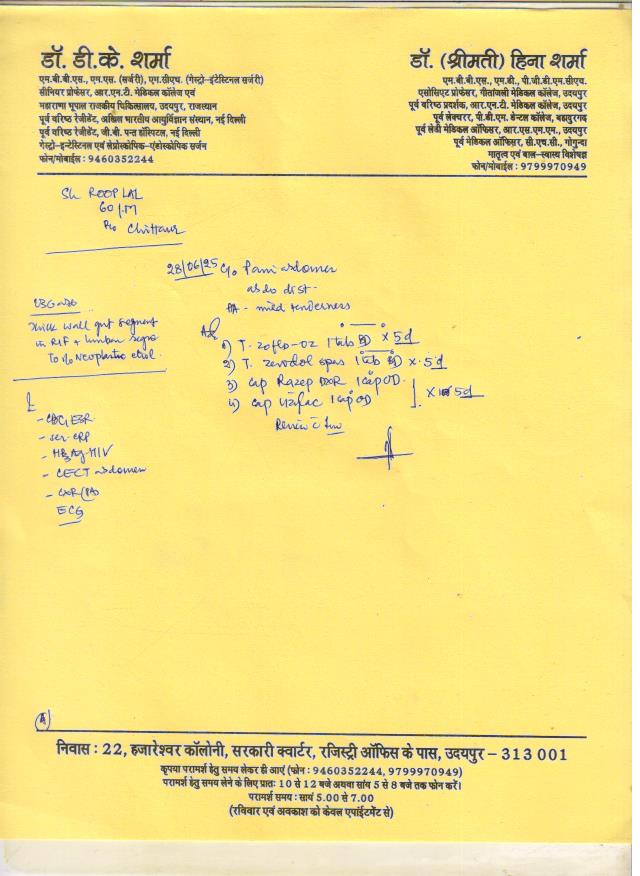 डॉ. डी.के. शर्मा
एम.बी.बी.एस., एम.एस. (सर्जरी), एम.सीएच. (गेस्ट्रो-इंटेस्टिनल सर्जरी)
सीनियर प्रोफेसर, आर.एन.टी. मेडिकल कॉलेज एवं
महाराणा भूपाल राजकीय चिकित्सालय, उदयपुर, राजस्थान
पूर्व वरिष्ठ रेजीडेंट, अखिल भारतीय आयुर्विज्ञान संस्थान, नई दिल्ली
पूर्व वरिष्ठ रेजीडेंट, जी.बी. पन्त हॉस्पिटल, नई दिल्ली
गेस्ट्रो-इन्टेस्टिनल एवं लेप्रोस्कोपिक-एंडोस्कोपिक सर्जन
फोन/मोबाईल : 9460352244
डॉ. (श्रीमती) हिना शर्मा
एम.बी.बी.एस., एम.डी., पी.जी.डी.एम.सीएच.
एसोसिएट प्रोफेसर, गीतांजली मेडिकल कॉलेज, उदयपुर
पूर्व वरिष्ठ प्रदर्शक, आर.एन.टी. मेडिकल कॉलेज, उदयपुर
पूर्व लेक्चरर, पी.डी.एम. डेन्टल कॉलेज, बहादुरगढ़
पूर्व लेडी मेडिकल ऑफिसर, आर.एस.एम.एम., उदयपुर
पूर्व मेडिकल ऑफिसर, सी.एच.सी., गोगुन्दा
मातृत्व एवं बाल-स्वास्थ्य विशेषज्ञ
फोन/मोबाईल : 9799970949
Sh ROOP LAL
60/M
R/o Chittaur
28/06/25 C/o Pain abdomen
abdo dist-
PA - mild tenderness
USG abd
thick wall gut segment
in RIF + lumbar
To r/o Neoplastic etiol.
Adv
1) T. zoflo-oz 1 tab BD × 5d
2) T. zerodol spas 1 tab BD × 5d
3) Cap Razep DSR 1 cap OD
4) Cap 1 cap OD
× 5d
Review
- CBC, ESR
- ser CRP
- HBsAg, HIV
- CECT abdomen
- CXR (PA)
ECG
A
निवास : 22, हजारेश्वर कॉलोनी, सरकारी क्वार्टर, रजिस्ट्री ऑफिस के पास, उदयपुर – 313 001
कृपया परामर्श हेतु समय लेकर ही आएं (फोन : 9460352244, 9799970949)
परामर्श हेतु समय लेने के लिए प्रातः 10 से 12 बजे अथवा सांय 5 से 8 बजे तक फोन करें।
परामर्श समय : सायं 5.00 से 7.00
(रविवार एवं अवकाश को केवल एपांईटमेंट से)